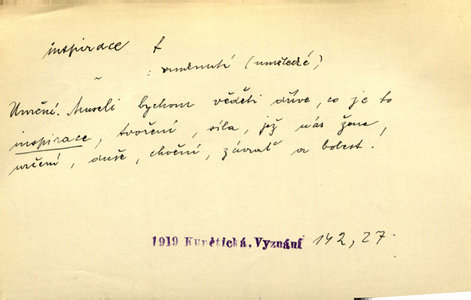 inspirace f
: vnuknutí (umělecké)
Umění. Museli bychom věděti dříve, co je to
inspirace, tvoření, síla, jež nás žene,
určení, duše, chvění, závrať a bolest.
1919 Kunětická, Vyznání 142, 27.